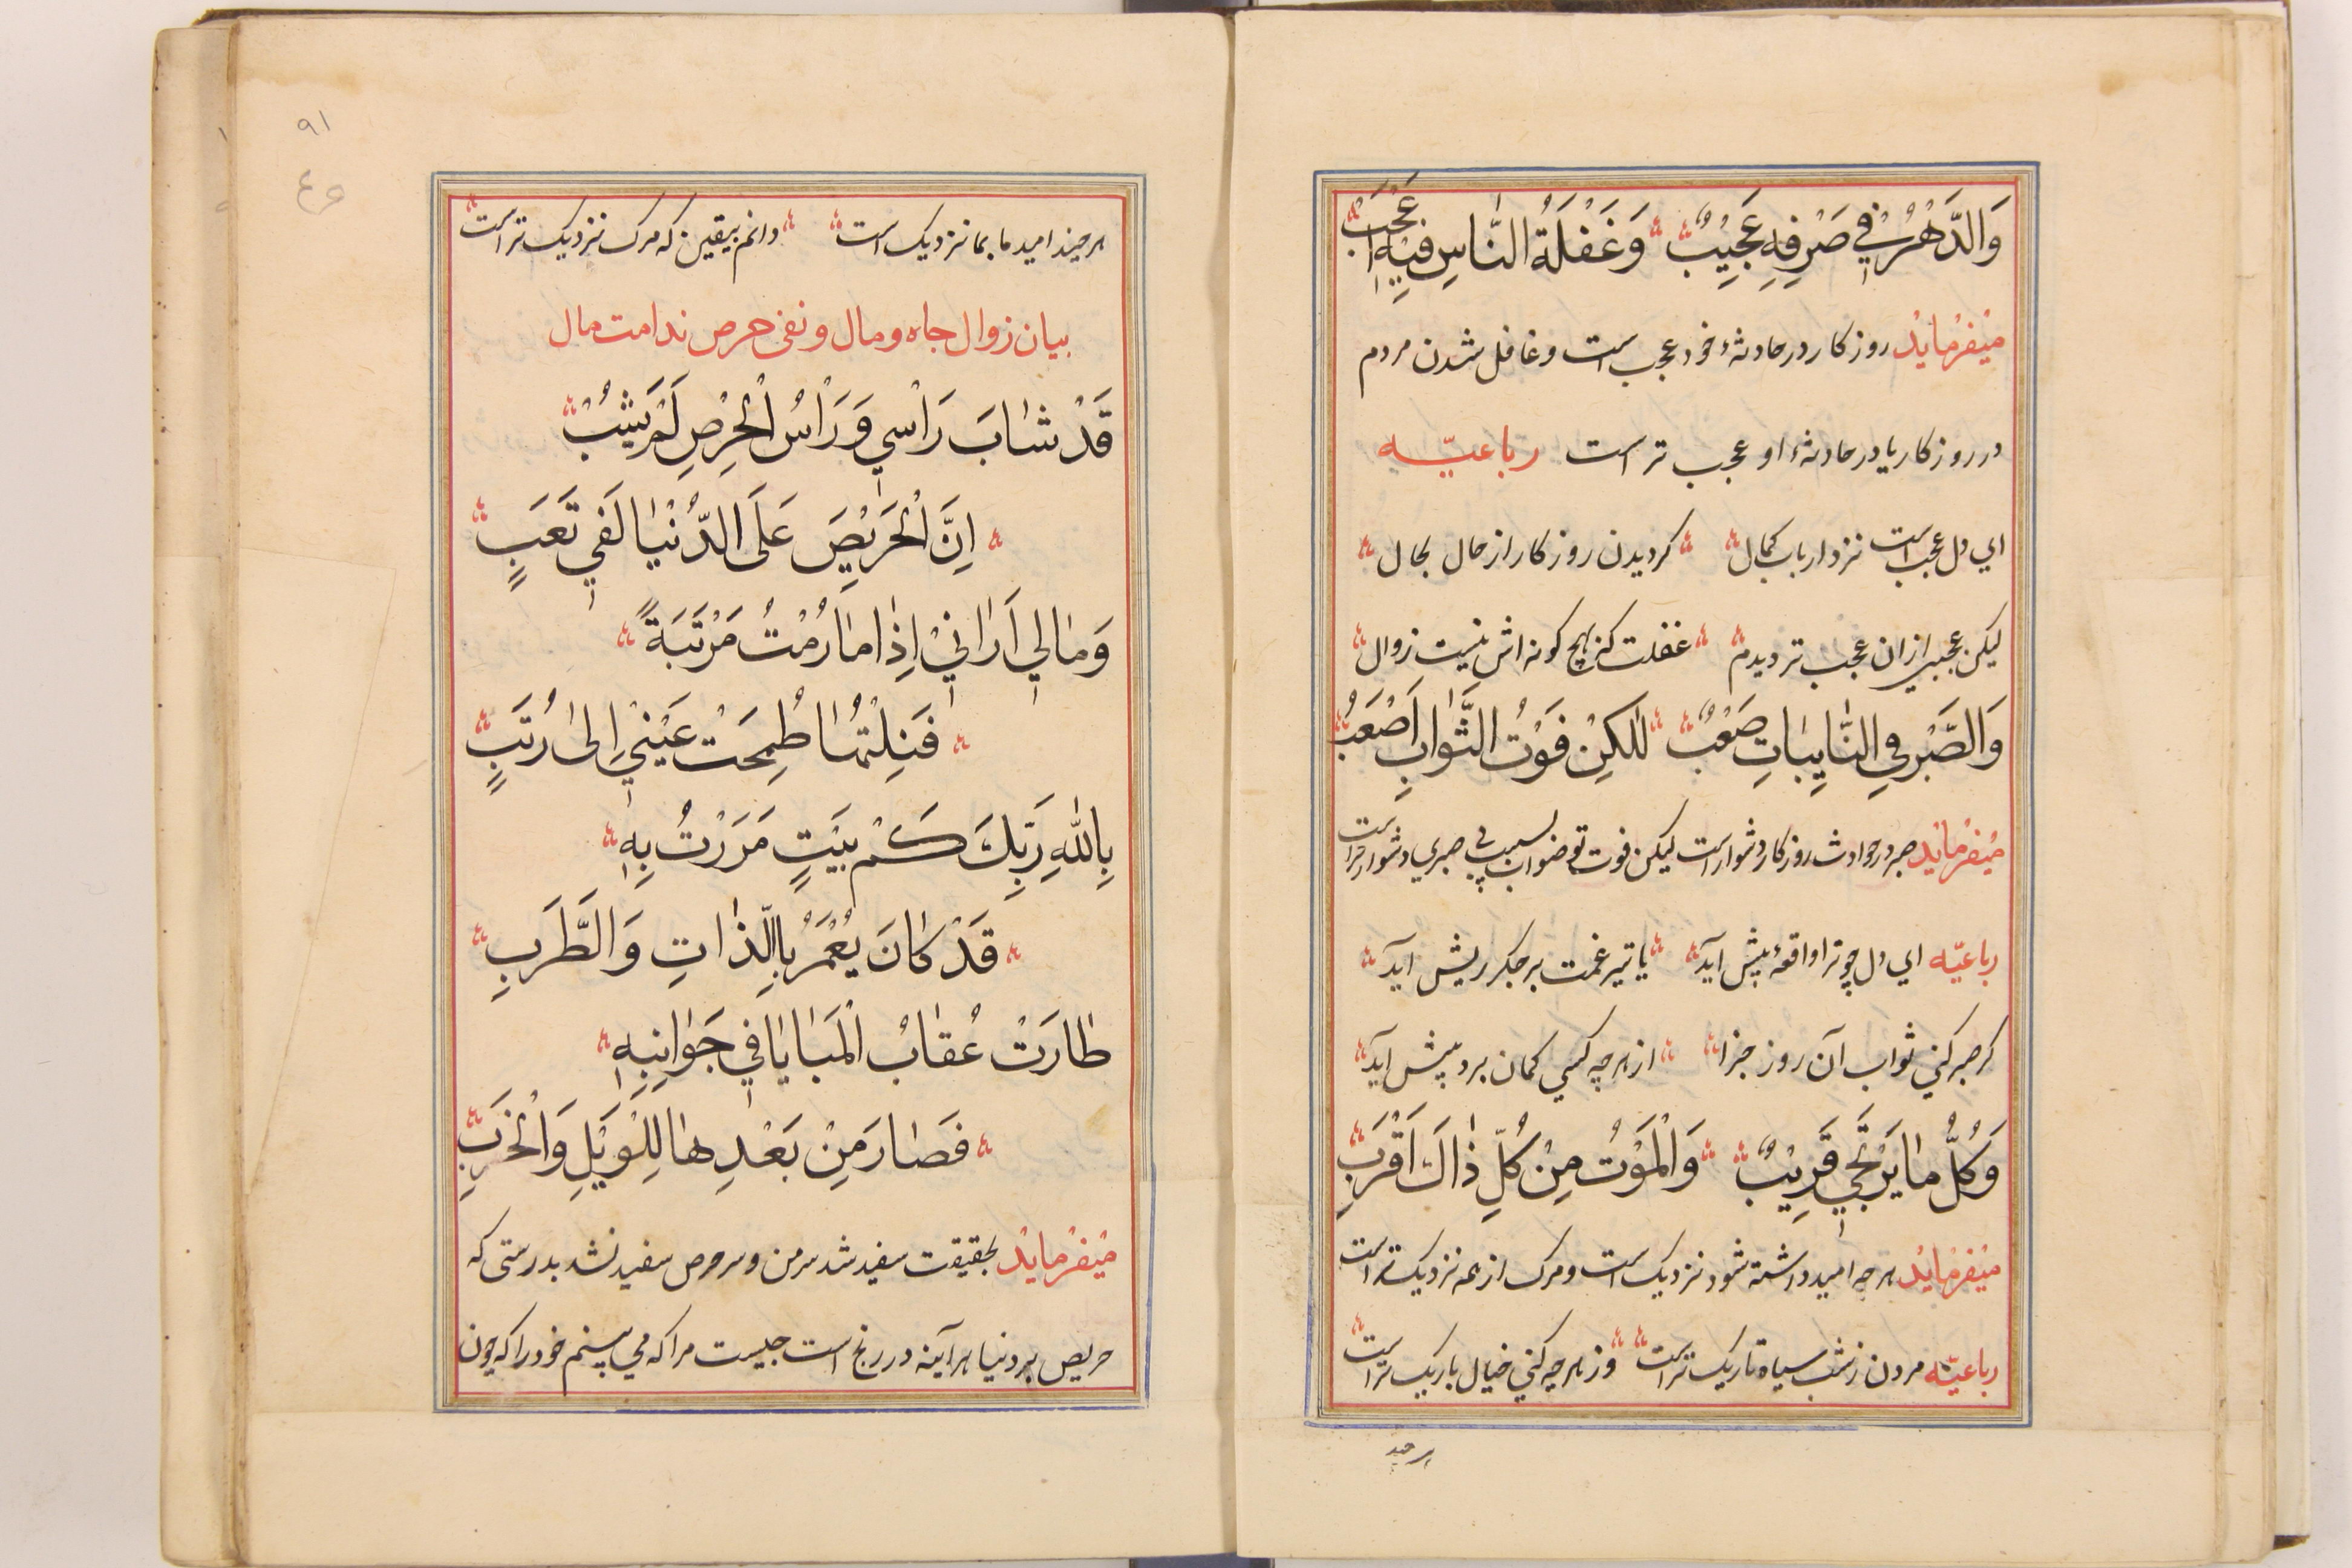 وَالدَّهْرُ فِي صَرْفِهِ عَجِيبٌ وَغَفْلَةُ النَّاسِ فِيهِ اَعْجَبُ
میفرماید روزکار در حادثهٔ خود عجب است و غافل شدن مردم
در روزکار یا در حادثهٔ او عجب تر است رباعیّه
ای دل عجب است نزد ارباب کمال کردیدن روزکار از حال بحال
لیکن عجبی ازان عجب تر دیدم غفلت کز هیچ کونه اش نیست زوال
وَالصَّبْرُ فِي النَّايِبَاتِ صَعْبٌ لٰكِنْ فَوْتُ الثَّوَابِ اَصْعَبُ
میفرماید صبر در حوادث روزکار دشوار است لیکن فوت ثواب بسبب بی صبری دشوارتر است
رباعیّه ای دل چو ترا واقعهٔ پیش آید یا تیر غمت بر جکر ریش آید
کر صبر کنی ثواب آن روز جزا از هر چه کسی کمان برد پیش آید
وَكُلُّ مَا يُرْتَجٰي قَرِيْبٌ وَالْمَوْتُ مِنْ كُلِّ ذَاكَ اَقْرَبُ
میفرماید هر چه امید داشته شود نزدیک است و مرک از همه نزدیکتر است
رباعیّه مردن ز شب سیاه تاریک تر است وز هر چه کنی خیال باریک تر است
هر چند
۹۱
هر چند امید ما بما نزدیک است دانم بیقین که مرک نزدیک تر است
بیان زوال جاه و مال و نفی حرص ندامت مال
قَدْ شَابَ رَاْسِي وَرَاْسُ الْحِرْصِ لَمْ يَشِبْ
اِنَّ الْحَرِيْصَ عَلَى الدُّنْيَا لَفِي تَعَبٍ
وَمَالِي اَرَانِيْ اِذَا مَا رُمْتُ مَرْتَبَةً
فَنِلْتُهَا طَمِحَتْ عَيْنِيْ اِلىٰ رُتَبٍ
بِاللّٰهِ رَبِّكَ كَمْ بَيْتٍ مَرَرْتُ بِهِ
قَدْ كَانَ يُعْمَرُ بِاللَّذَاتِ وَالطَّرَبِ
طَارَتْ عُقَابُ الْمَنَايَا فِي جَوَانِبِهِ
فَصَارَ مِنْ بَعْدِهَا لِلْوَيْلِ وَالْخَرَبِ
میفرماید بحقیقت سفید شد سر من و سر حرص سفید نشد بدرستی که
حریص بر دنیا هرآینه در رنج است چیست مرا که می بینم خود را که چون